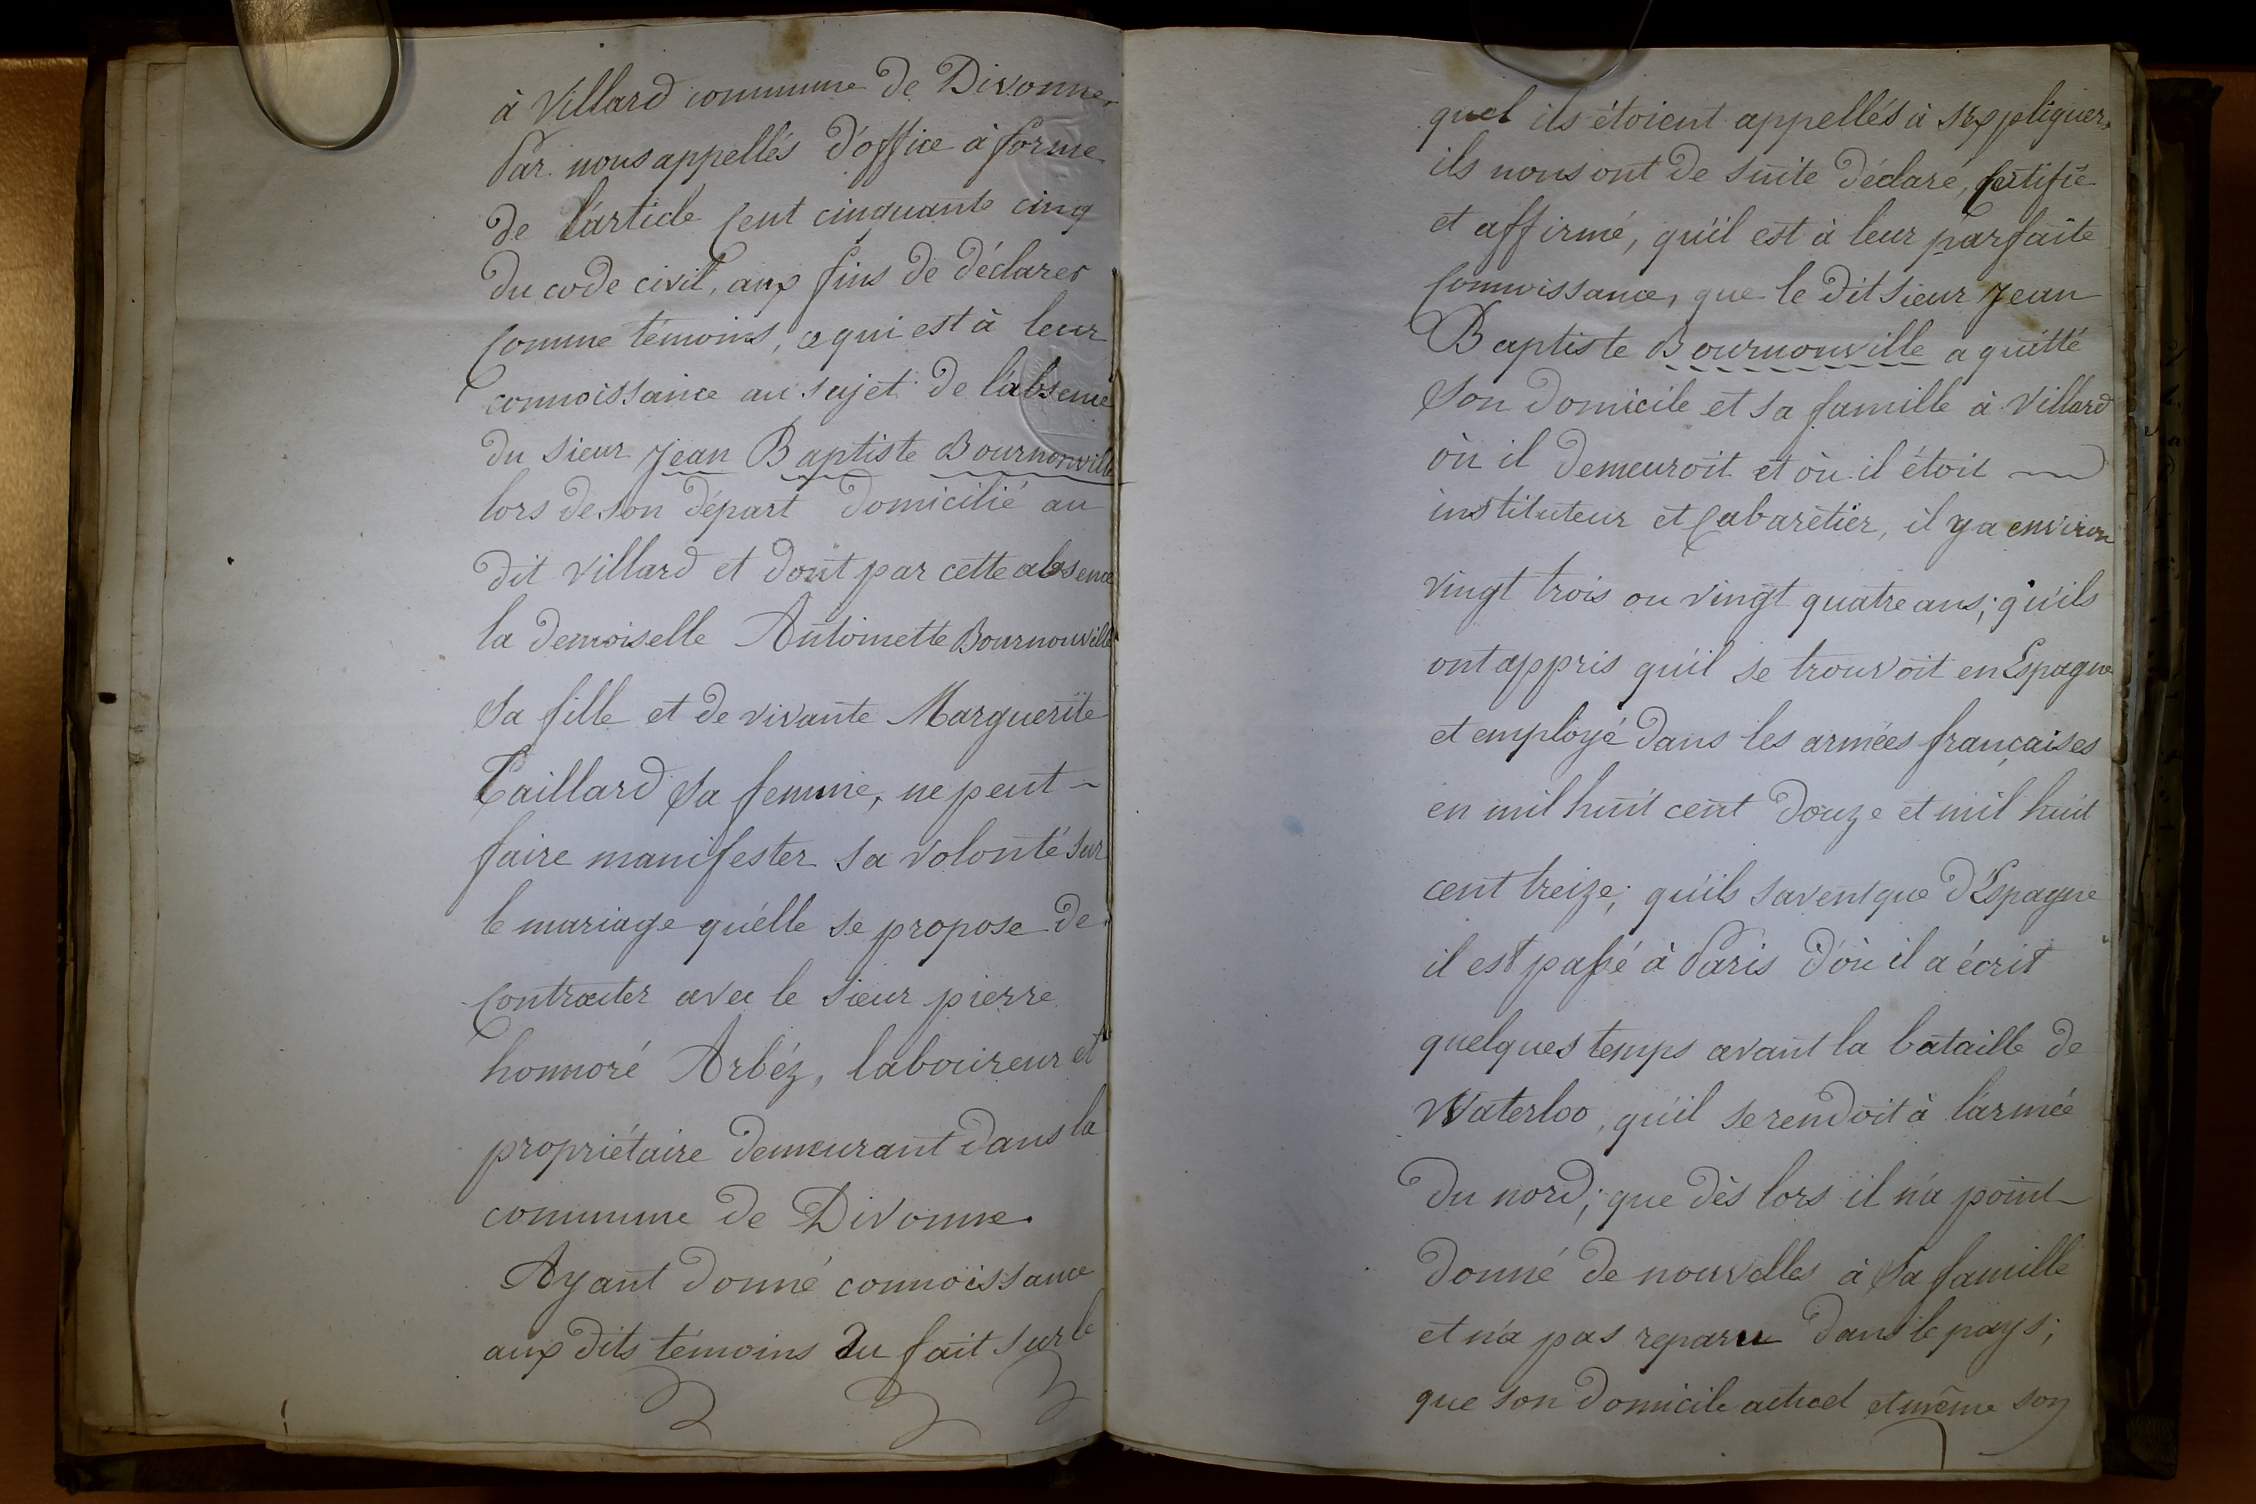 à Villard commune de Divonne,
Par nous appellés d'office à forme
de l'article Cent cinquante cinq
du code civil, aux fins de déclarer
Comme témoins, ce qui est à leur
connoissance au sujet de l'absence
du sieur Jean Baptiste Bournonville
lors de son départ domicilié au
dit Villard et dont par cette absence
la demoiselle Antoinette Bournonville
Sa fille et de vivante Marguerite
Taillard Sa femme, ne peut
faire manifester sa volonté sur
le mariage qu'elle se propose de
Contracter avec le sieur pierre
honnoré Arbéz, laboureur et
propriétaire demeurant dans la
commune de Divonne.
Ayant donné connoissance
aux dits témoins du fait sur le
quel ils étoient appellés à s'expliquer,
ils nous ont de suite déclaré, Certifié
et affirmé, qu'il est à leur parfaite
Connoissance, que le dit sieur Jean
Baptiste Bournonville a quitté
Son domicile et sa famille à Villard
où il demeuroit et où il étoit
instituteur et Cabaretier, il y a environ
vingt trois ou vingt quatre ans; qu'ils
ont appris qu'il se trouvoit en Espagne
et employé dans les armées françaises
en mil huit cent douze et mil huit
cent treize; qu'ils savent que d'Espagne
il est passé à Paris d'où il a écrit
quelques temps avant la bataille de
Waterloo, qu'il se rendoit à l'armée
du nord; que dès lors il n'a point
donné de nouvelles à Sa famille
et n'a pas reparu dans le pays;
que son domicile actuel et même son